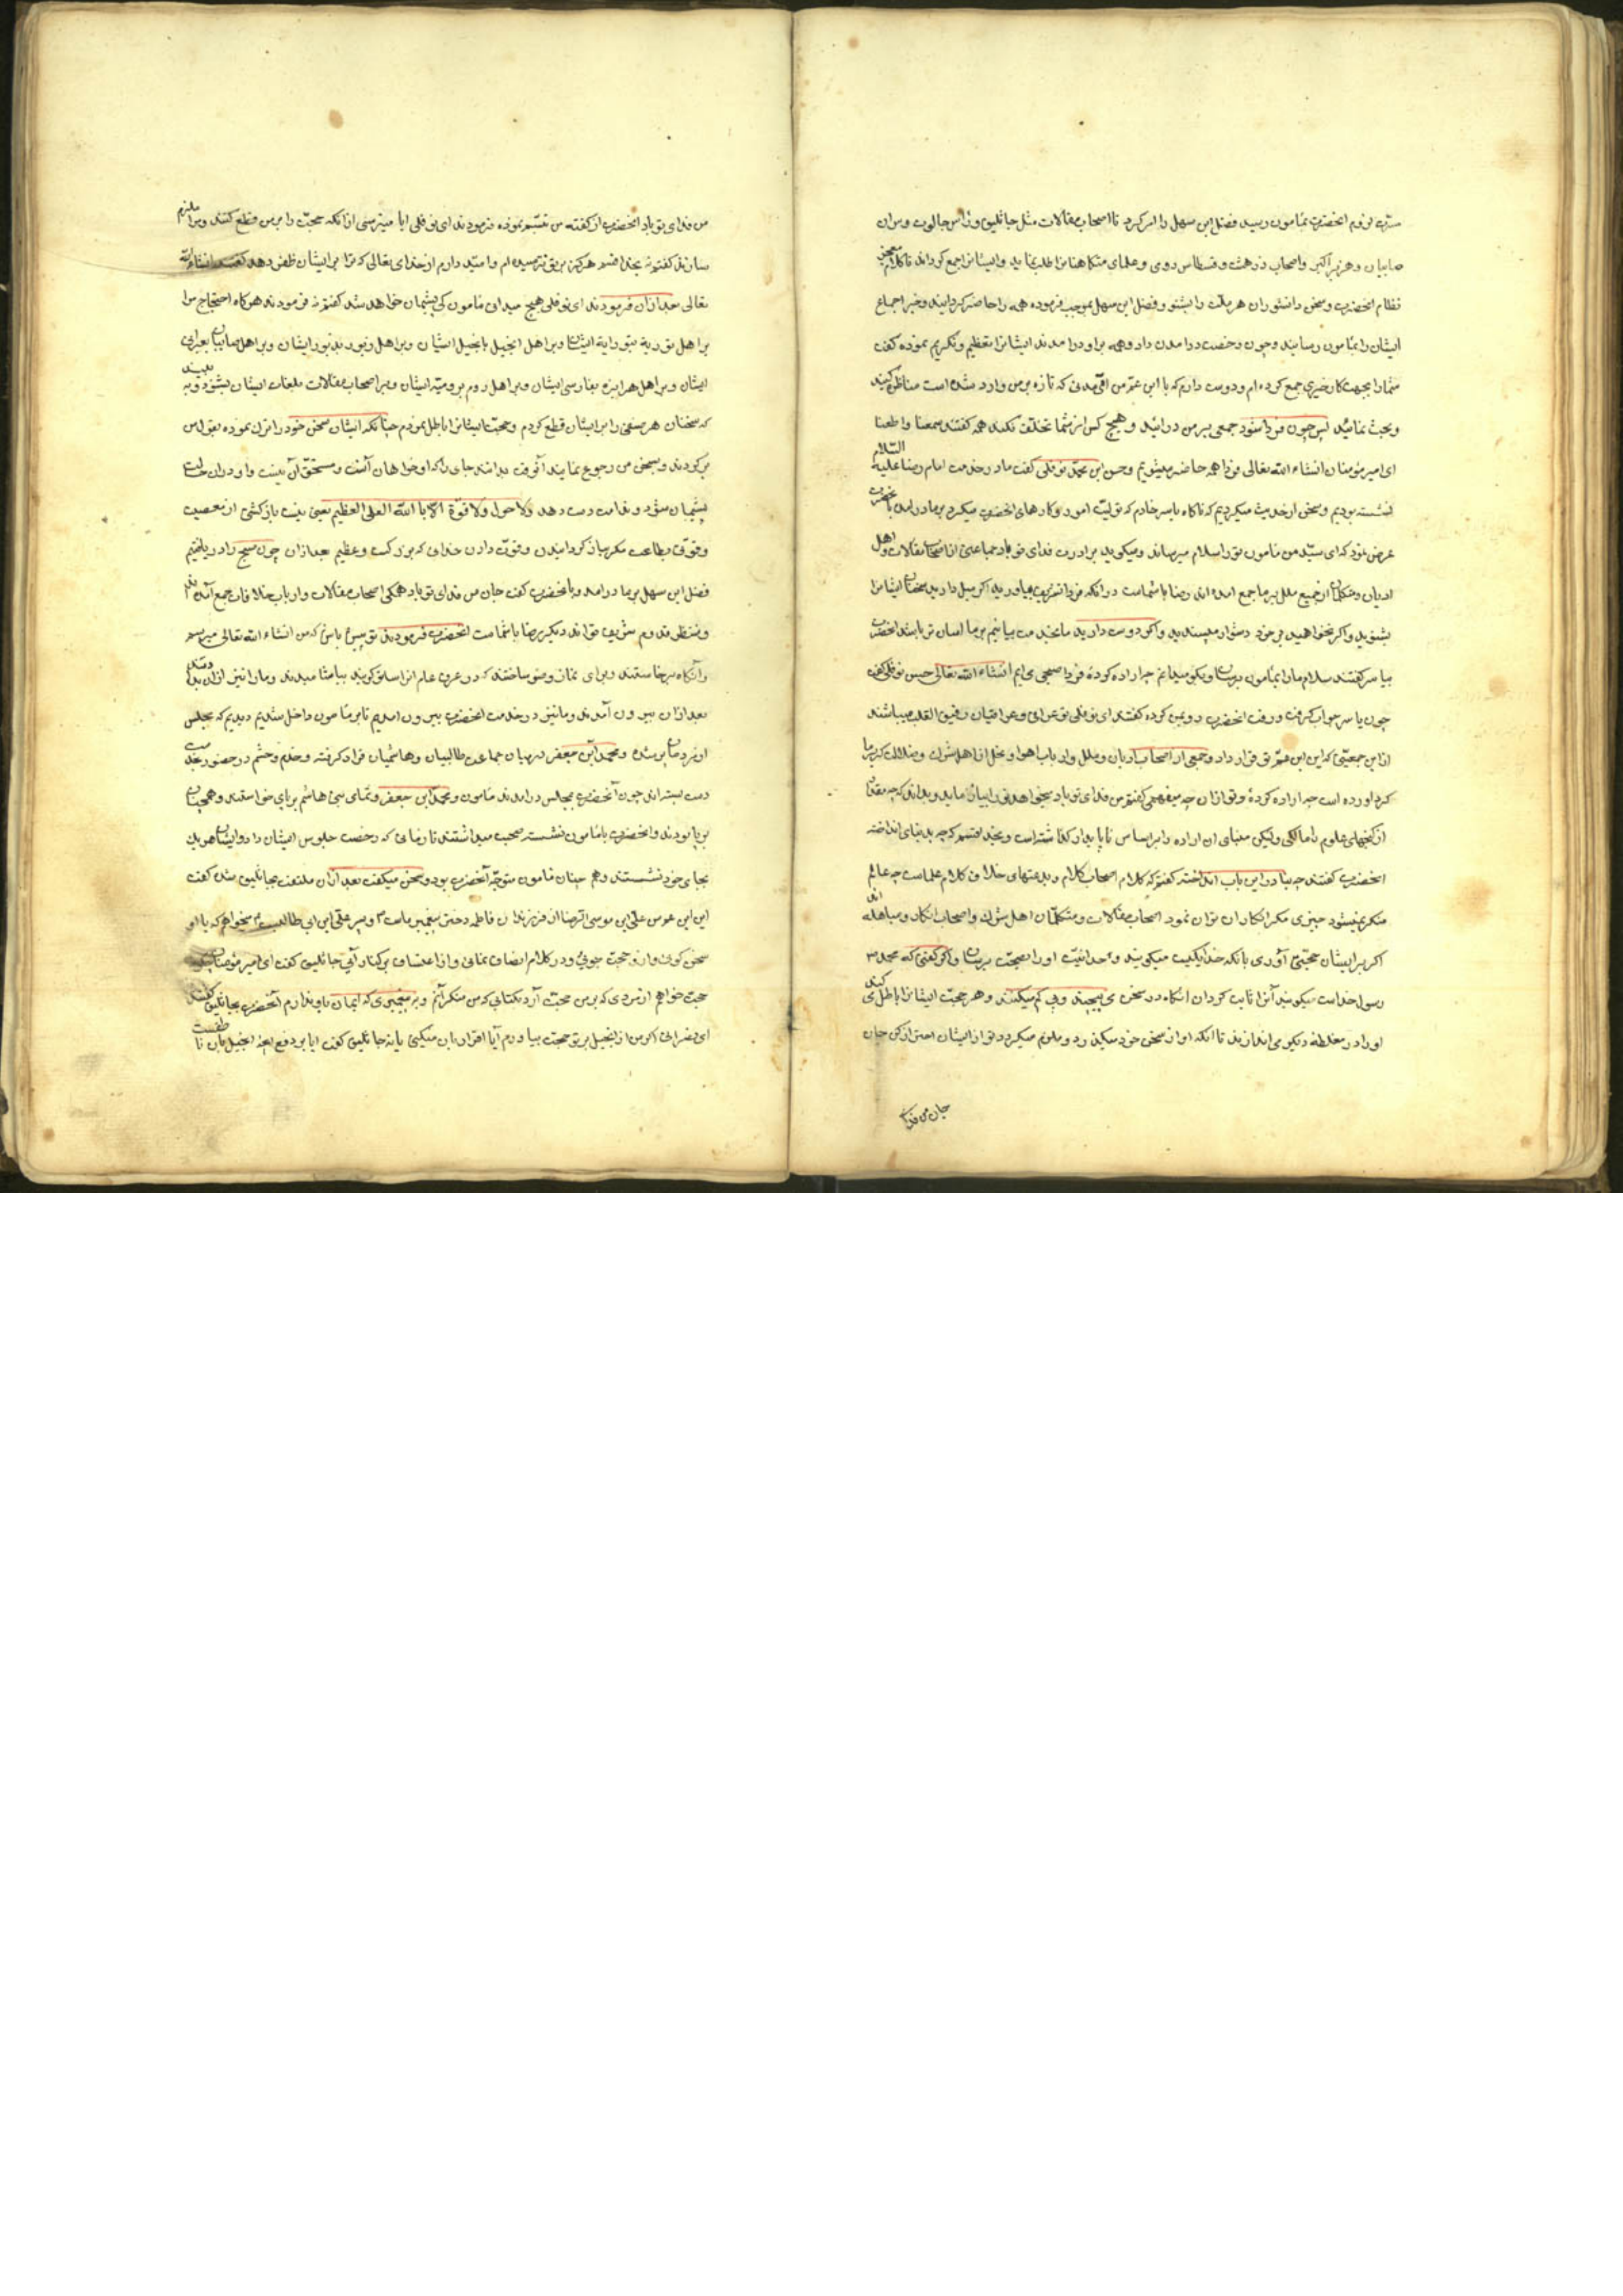 صابیان و هربز اکبر و اصحاب زردهشت و قسطاس رومی و علمای متکلمان را طلب نماید و ایشانرا جمع گرداند تا کلام
نظام آنحضرت و سخن دانشوران هر ملت را بشنود و فضل ابن سهل بموجب فرموده همه را حاضر گردانید و خبر اجماع
ایشان را بمأمون رسانید و چون رخصت درآمدن داد و همه برو درآمدند ایشانرا تعظیم و تکریم نموده گفت
شما را بجهت کار خیری جمع کرده ام و دوست دارم که با ابن عمّ من مدنی که تازه بر من وارد شده است مناظره کنید
و بحث نمائید پس چون فردا شود جمعی بر من درآئید و هیچ کس از شما تخلف نکند همه گفتند سمعنا و اطعنا
ای امیر مؤمنان انشاء الله تعالی فردا همه حاضر میشویم و حسن ابن محمّد نوفلی گفت ما در خدمت امام رضا علیه السّلام
نشسته بودیم و سخن از حدیث میکردیم که ناگاه یاسر خادم که تولیت امور و کارهای آنحضرت میکرد بر ما درآمد
عرض نمود که ای سیّد من مأمون تو را سلام میرساند و میگوید برادرت فدای تو باد جماعتی از اصحاب مقالات و اهل
ادیان و متکلمان از جمیع ملل بر ما جمع آمده اند رضا با شماست در آنکه فردا تشریف بیاورید اگر میل دارید سخنان ایشانرا
بشنوید و اگر نخواهید بر خود دشوار مپسندید و اگر دوست دارید ما بخدمت بیائیم بر ما آسان تر باشد آنحضرت
بیاسر گفتند سلام ما را بمأمون برسان و بگو میدانم چه اراده کردهٔ فردا صبحی می ایم انشاء الله تعالی حسن نوفلی گفت
چون یاسر جواب گرفت و رفت آنحضرت رو بمن کرده گفتند ای نوفلی تو عراقی و عراقیان رقیق القلب میباشند
از این جمعیّتی که این ابن عمّ تو قرار داد و جمعی از اصحاب ادیان و ملل و ارباب اهوا و نحل از اهل شرک و ضلالت که بر ما
گرد آورده است چه اراده کردهٔ و تو از آن چه میفهمی گفتم من فدای تو باد میخواهد
آنحضرت گفتند چه بنا در این باب انداخته گفتم که کلام اصحاب کلام و بدعتهای خلاف کلام علماست چه عالم
منکر نمیشود چیزی مگر انکار آن توان نمود اصحاب مقالات و متکلّمان اهل شرک و اصحاب انکار و مباهله اند
اگر بر ایشان حجّتی آوری بآنکه خدا یکیست میگویند وحدانیّت او را بصحّت برسان و اگر گفتی که محمد
رسول خداست میگویند آنرا ثابت گردان آنگاه در سخن می پیچند و پی گم میکنند و هر حجّت ایشانرا باطل می کند
او را در مغلطه دیگر می اندازند تا آنکه او از سخن خود میگذرد و ملزم میگردد تو از ایشان احتراز کن جان
جان من فدای
من فدای تو باد آنحضرت از گفته من تبسّم نموده فرمودند ای نوفلی آیا میترسی از آنکه حجّت را بر من قطع کنند و مرا ملزم
سازند گفتم نه بخدا قسم هرگز بر تو نترسیده ام و امیّد دارم از خدای تعالی که ترا بر ایشان ظفر دهد گفتند انشاء الله
تعالی بعد از آن فرمودند ای نوفلی هیچ میدانی مأمون کی پشیمان خواهد شد گفتم نه فرمودند هرگاه احتجاج مرا
بر اهل توریة بتورایة ایشان و بر اهل انجیل بانجیل ایشان و بر اهل زبور بزبور ایشان و بر اهل صابیان بعبرانی
ایشان و بر اهل هرابزه بفارسی ایشان و بر اهل روم برومیّه ایشان و بر اصحاب مقالات بلغات ایشان بشنود و به بیند
که سخنان هر صنفی را بر ایشان قطع کردم و حجّت ایشانرا باطل نمودم چنانکه ایشان سخن خود را ترک نموده بقول من
بر گردند و بسخن من رجوع نمایند آنوقت بداند جای را که او خواهان آنست و مستحقّ آن نیست و او در آن حالت
پشیمان شود و ندامت دست دهد ولا حول ولا قوّة الّا بالله العلیّ العظیم یعنی نیست بازگشتی از معصیت
و قوّتی بطاعت مگر بباز گردانیدن و قوّت دادن خدای که بزرگست و عظیم بعد از آن چون صبح را دریافتیم
فضل ابن سهل بر ما درآمد و بآنحضرت گفت جان من فدای تو باد همگی اصحاب مقالات و ارباب خلافات جمع آمده اند
و منتظر قدوم شریف تواند دیگر رضا با شماست آنحضرت فرمودند تو پیش باش که من انشاء الله تعالی میرسم
و آنگاه برخاستند و برای نماز وضو ساختند
بعد از آن بیرون آمدند و ما نیز در خدمت آنحضرت بیرون آمدیم تا بر مأمون داخل شدیم دیدیم که مجلس
او بمردمان پر شده و محمد ابن جعفر در میان جماعت طالبیان و هاشمیان قرار گرفته و خدم و حشم در حضور بخدمت
دست بسته اند چون آنحضرت بمجلس درآمدند مأمون و محمد ابن جعفر و تمامی بنی هاشم بر پای خواستند و همچنان
بر پا بودند و آنحضرت با مأمون نشسته صحبت میداشتند تا زمانی که رخصت جلوس ایشان داد و ایشان هر یک
بجای خود نشستند و هم چنان مأمون متوجّه آنحضرت بود و سخن میگفت بعد از آن ملتفت بجاثلیق شد گفت
این ابن عم من علیّ ابن موسی الرضا از فرزندان فاطمه دختر پیغمبر ماست و پسر علیّ ابن ابی طالب است میخواهم که با او
سخن گوئی و از او حجّت جوئی و در کلام انصاف نمائی و از اعتساف بر کنار آئی جاثلیق گفت ای امیر مؤمنان
حجّت خواهم از مردی که بر من حجّت آرد بکتابی که من منکر آنم و به پیغمبری که ایمان باو ندارم آنحضرت بجاثلیق گفتند
ای نصرانی اگر من از انجیل بر تو حجّت بیاورم آیا اقرار بآن میکنی یا نه جاثلیق گفت آیا بر دفع آنچه انجیل بآن ناطقست